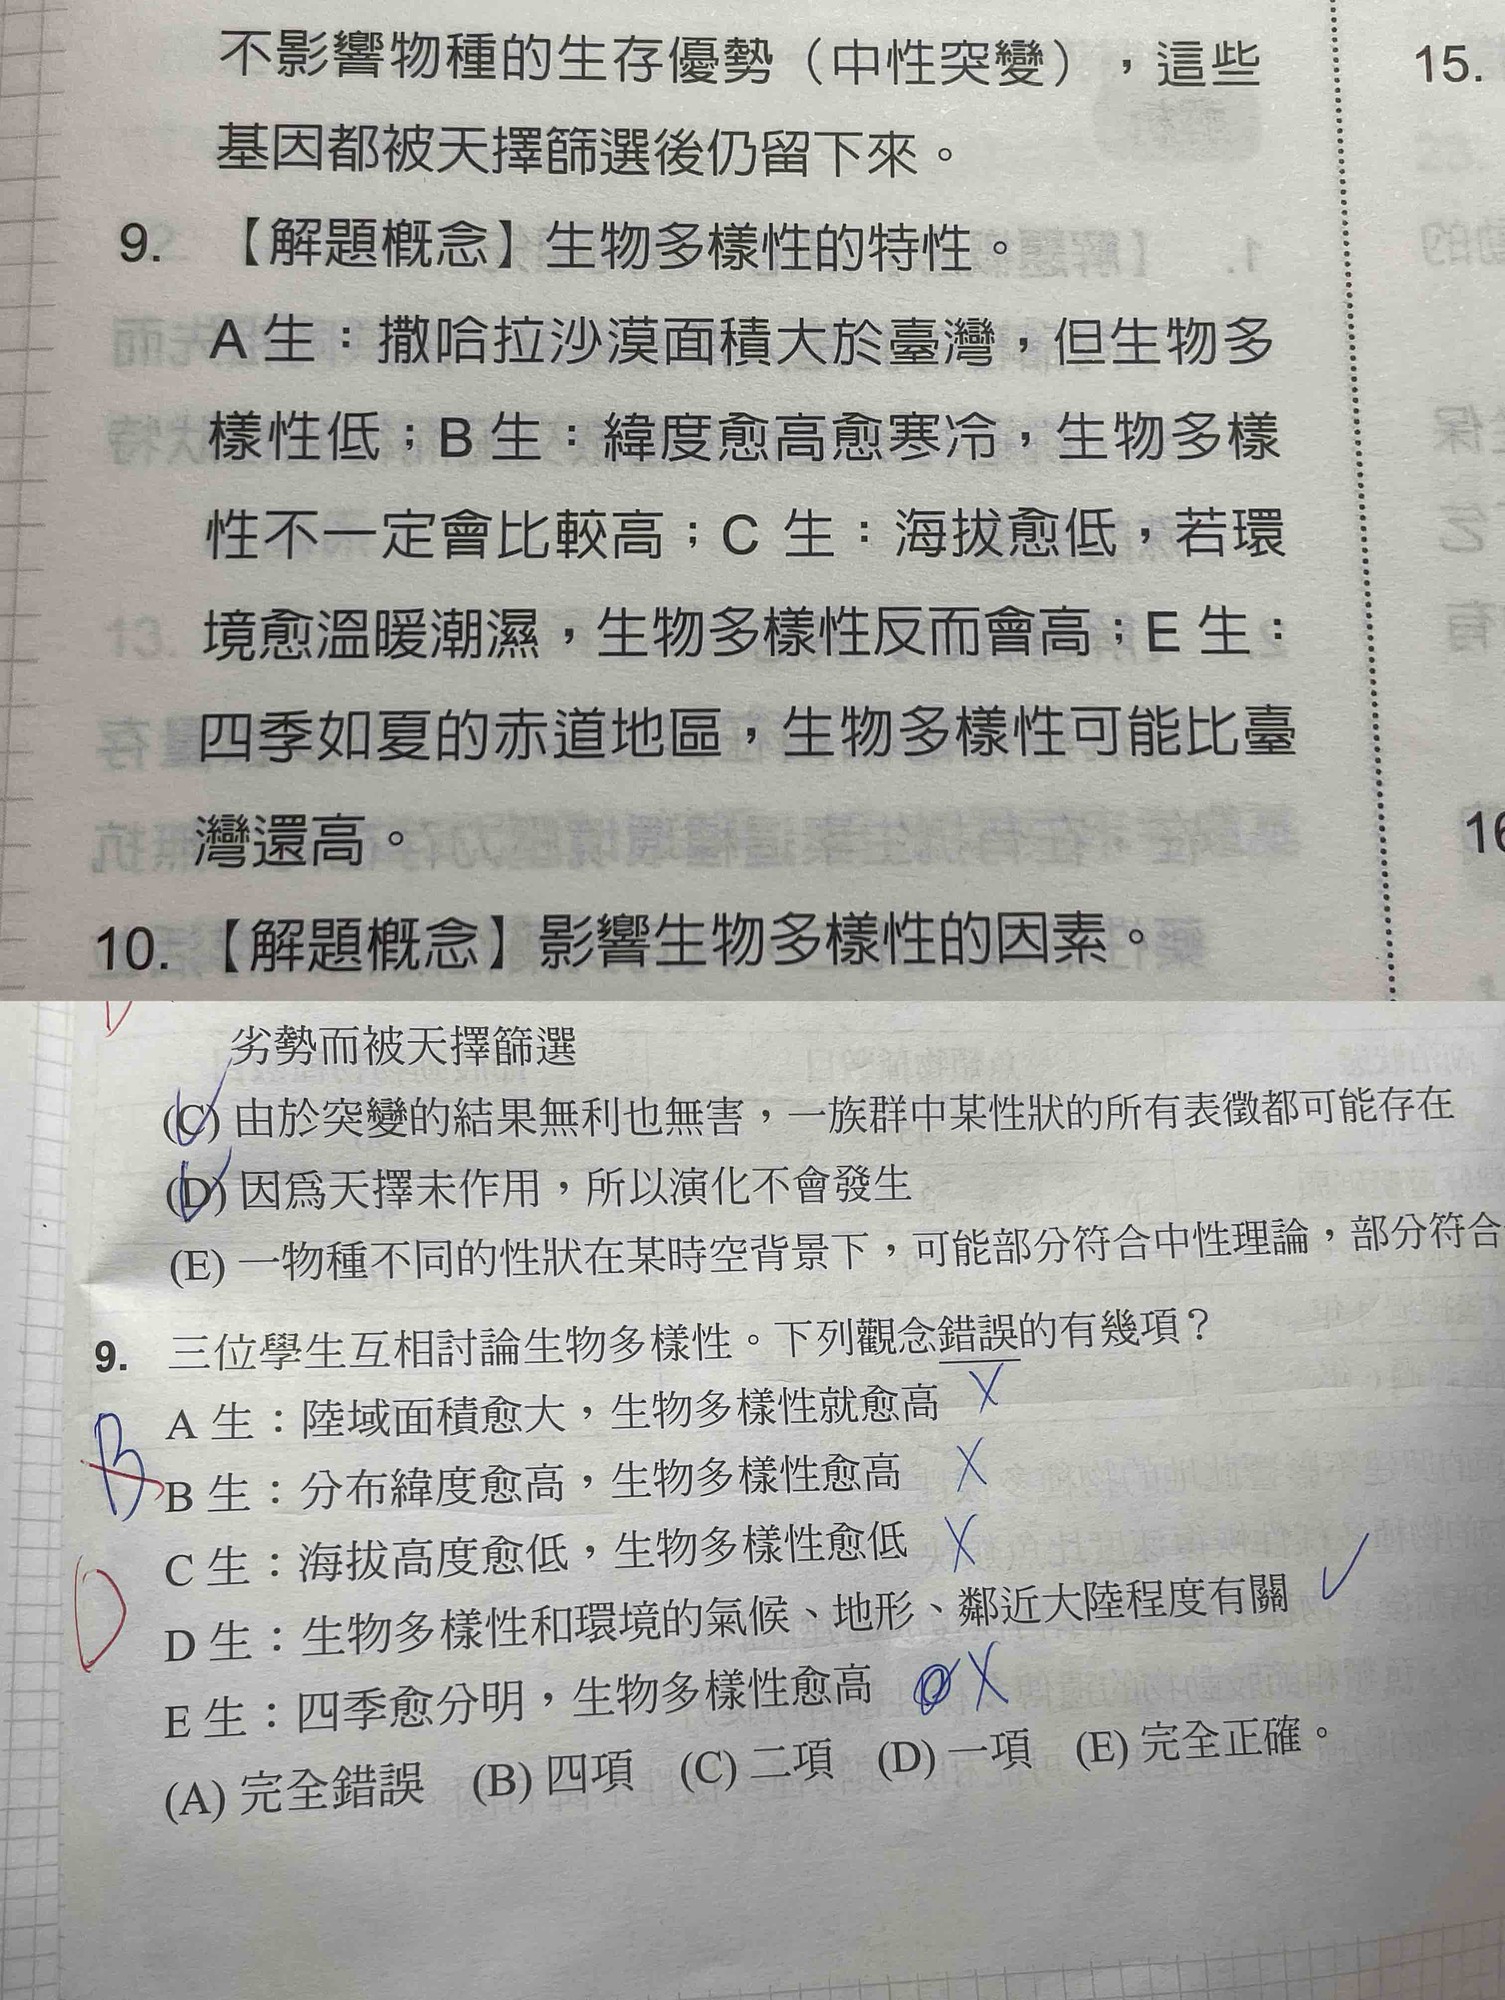 不影響物種的生存優勢（中性突變），這些
基因都被天擇篩選後仍留下來。
9. 【解題概念】生物多樣性的特性。
A 生：撒哈拉沙漠面積大於臺灣，但生物多
樣性低；B 生：緯度愈高愈寒冷，生物多樣
性不一定會比較高；C 生：海拔愈低，若環
境愈溫暖潮濕，生物多樣性反而會高；E 生：
四季如夏的赤道地區，生物多樣性可能比臺
灣還高。
10. 【解題概念】影響生物多樣性的因素。
15.
16
劣勢而被天擇篩選
(C) 由於突變的結果無利也無害，一族群中某性狀的所有表徵都可能存在
(D) 因為天擇未作用，所以演化不會發生
(E) 一物種不同的性狀在某時空背景下，可能部分符合中性理論，部分符合
9. 三位學生互相討論生物多樣性。下列觀念錯誤的有幾項？
A 生：陸域面積愈大，生物多樣性就愈高 X
B B 生：分布緯度愈高，生物多樣性愈高 X
C 生：海拔高度愈低，生物多樣性愈低 X
D D 生：生物多樣性和環境的氣候、地形、鄰近大陸程度有關 ✓
E 生：四季愈分明，生物多樣性愈高 X
(A) 完全錯誤 (B) 四項 (C) 二項 (D) 一項 (E) 完全正確。